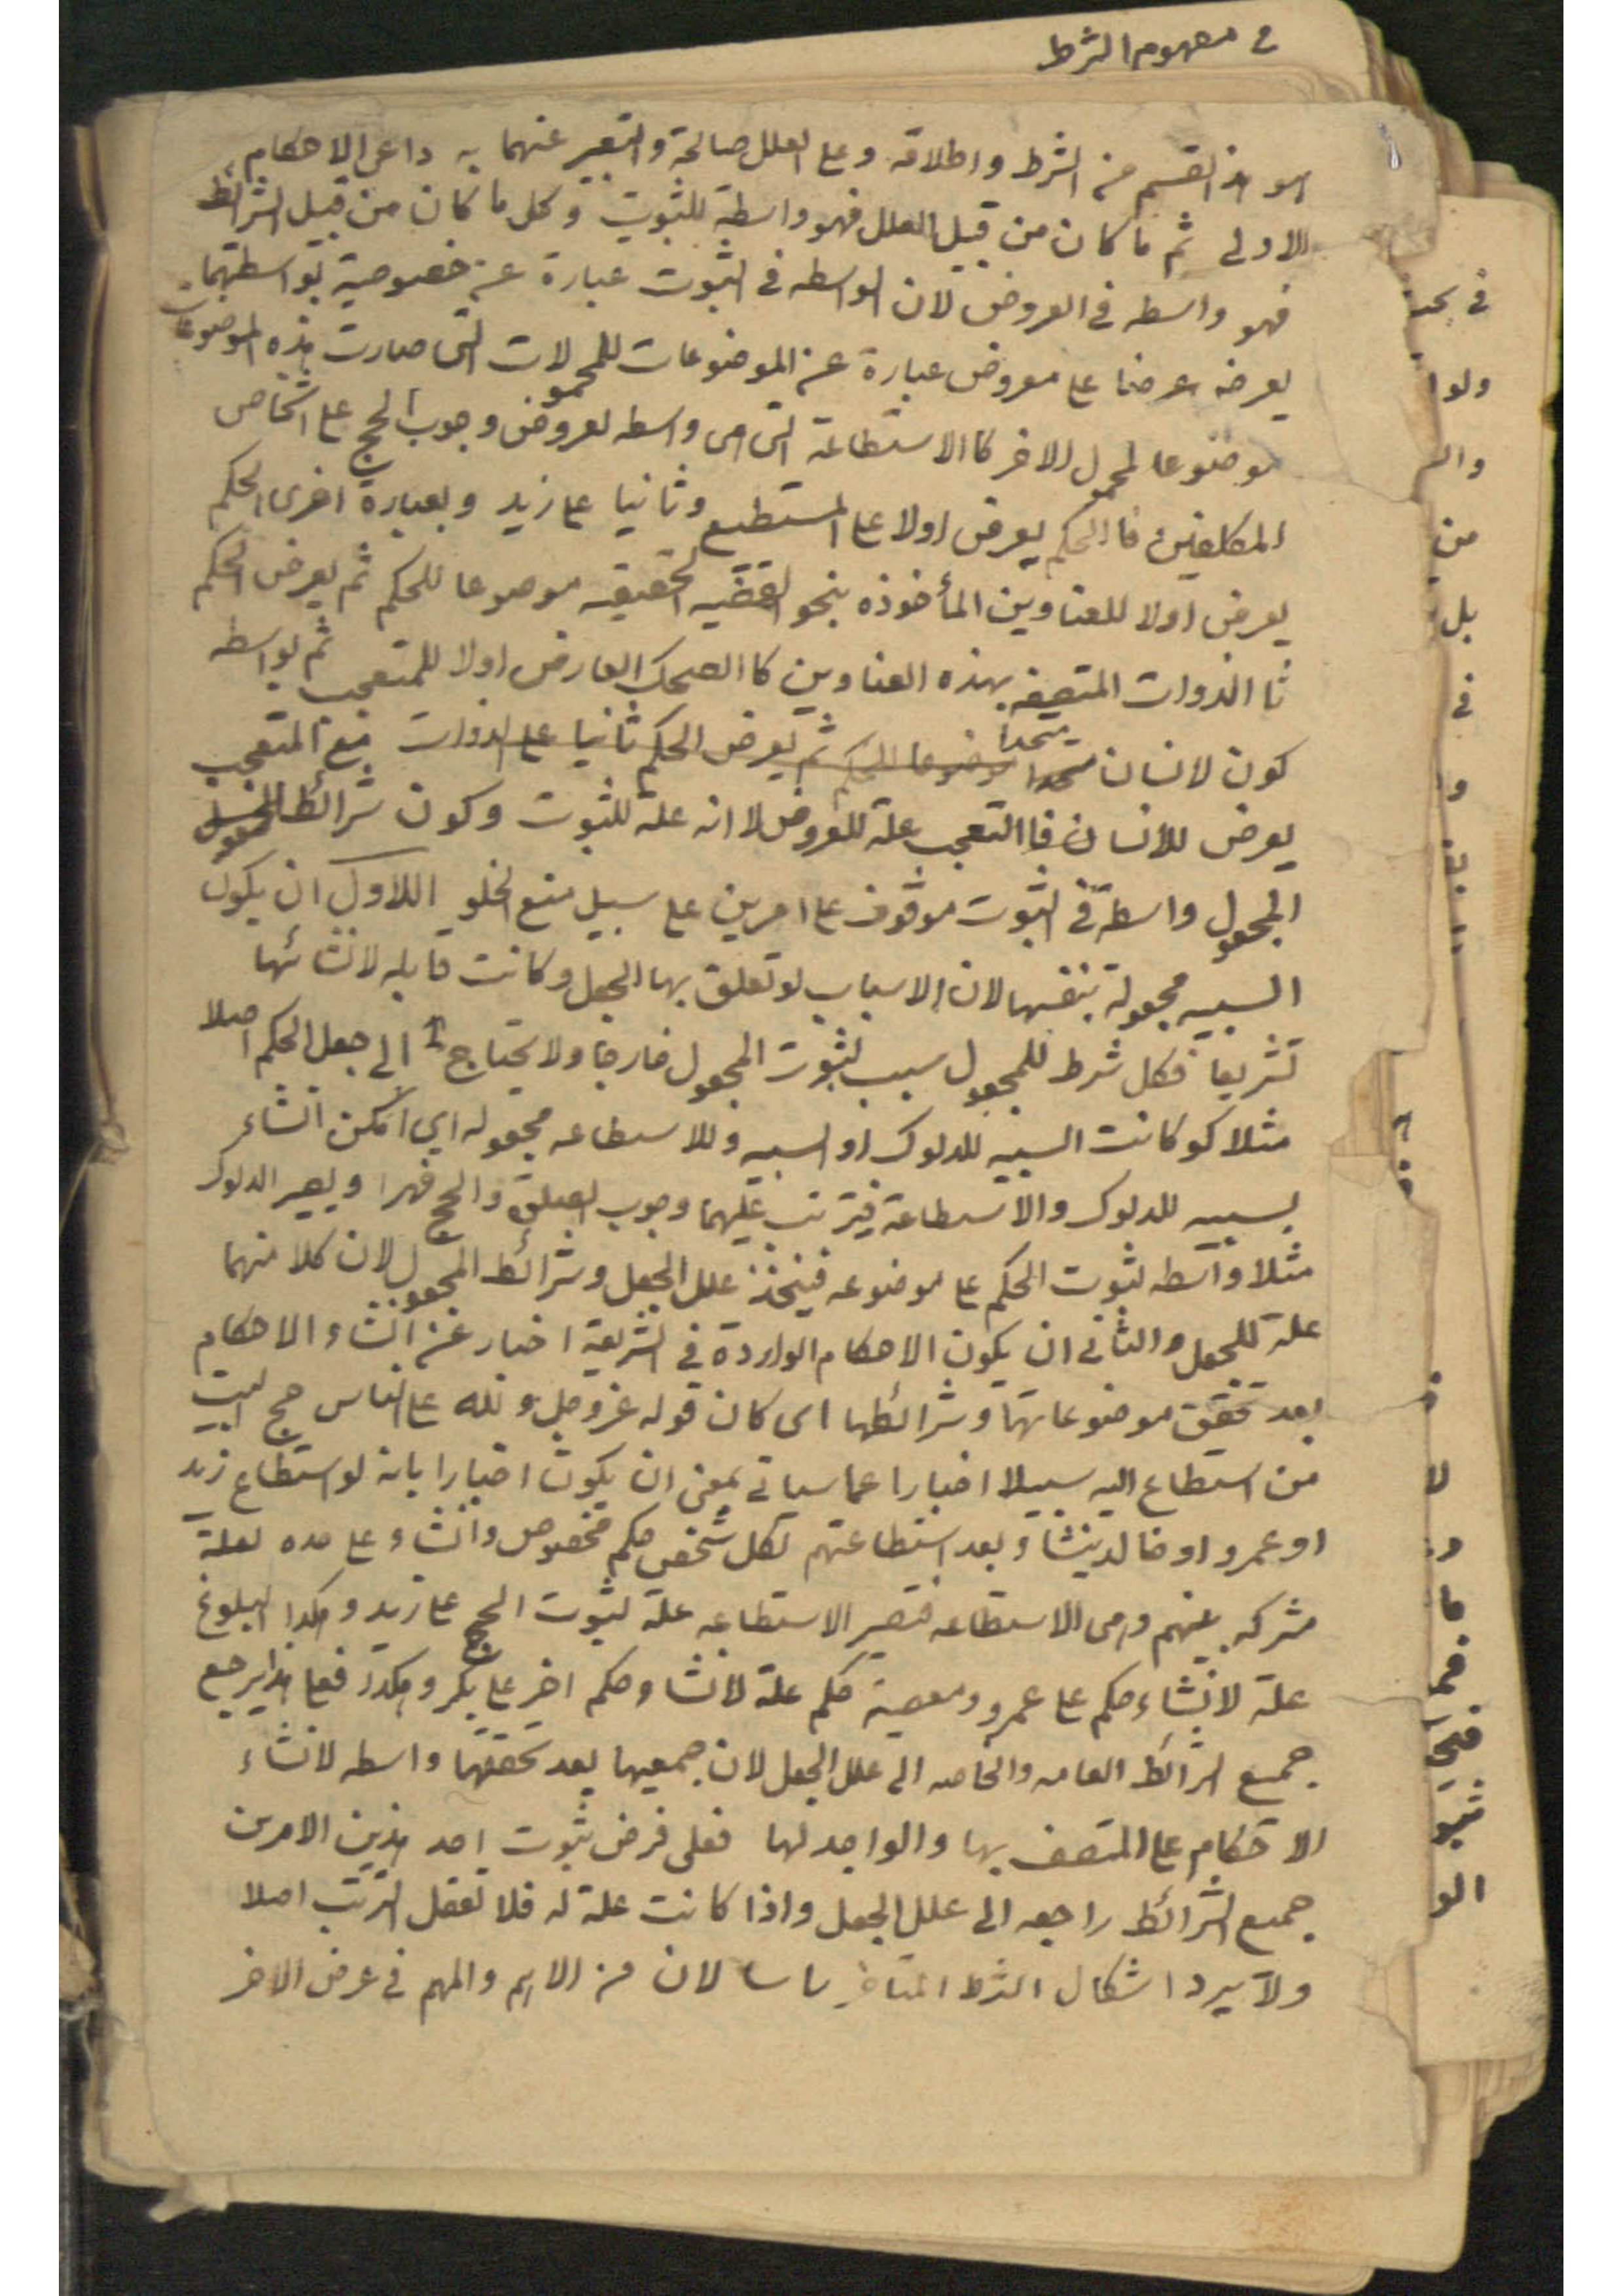 في مفهوم الشرط
هو هذا القسم من الشرط واطلاقه وعلى العلل صالحة والتعبير عنهما به داعى الاحكام
الاولى ثم ما كان من قبيل العلل فهو واسطة للثبوت وكل ما كان من قبيل الشرائط
فهو واسطه في العروض لان الواسطه في الثبوت عبارة عن خصوصية بواسطتهما
يعرض عرضا على معروض عبارة عن الموضوعات للمحمولات التى صارت هذه الموضوعات
موضوعا لمحمول الاخر كا الاستطاعة التى هى واسطه لعروض وجوب الحج على اشخاص
المكلفين فا الحكم يعرض اولا على المستطيع وثانيا على زيد وبعبارة اخرى الحكم
يعرض اولا للعناوين المأخوذه بنحو القضيه الحقيقيه موضوعا للحكم ثم يعرض الحكم
ثا الذوات المتصفه بهذه العناوين كا الضحك العارض اولا للمتعجب ثم بواسطه
كون لانسان متحدا موضوعا للحكم ثم يعرض الحكم ثانيا على الذوات مع المتعجب
يعرض للانسان فا التعجب علة للعروض لا انه علة للثبوت وكون شرائط
المجعول واسطة في الثبوت موقوف على امرين على سبيل منع الخلو اللاول ان يكون
السببيه مجعولة بنفسها لان الاسباب لو تعلق بها الجعل وكانت قابله لانشائها
تشريعا فكل شرط للمجعول سبب لثبوت المجعول خارجا ولا يحتاج الى جعل الحكم اصلا
مثلا لو كانت السببيه للدلوك او السببيه وللاستطاعه مجعوله اي امكن انشاء
لسببيه للدلوك والاستطاعة فيترتب عليهما وجوب الصلوة والحج قهرا ويصير الدلوك
مثلا واسطه لثبوت الحكم على موضوعه فيتحد علل الجعل وشرائط المجعول لان كلا منهما
علة للجعل والثانى ان يكون الاحكام الواردة في الشريعة اخبار عن انشاء الاحكام
بعد تحقق موضوعاتها وشرائطها اى كان قوله عزوجل ولله على الناس حج البيت
من استطاع اليه سبيلا اخبارا عما سياتى بمعنى ان يكون اخبارا بانه لو استطاع زيد
او عمرو او خالد ينشاء بعد استطاعتهم لكل شخص حكم مخصوص وانشاء على حده لعلة
مشركه بينهم وهى الاستطاعه فتصير الاستطاعه علة لثبوت الحج على زيد وهكذا البلوغ
علة لانشاء حكم على عمرو ومعصية حكم علة لانشاء حكم اخر على بكر وهكذا فعلى هذا يرجع
جميع الشرائط العامه والخاصه الى علل الجعل لان جميعها بعد تحققها واسطه لانشاء
الاحكام على المتصف بها والواجد لها فعلى فرض ثبوت احد هذين الامرين
جميع الشرائط راجعه الى علل الجعل واذا كانت علة له فلا تعقل الترتب اصلا
ولا يرد اشكال الشرط المتاخر لان من الاهم والمهم في عرض الاخر
ولوا
من
بل
في
لا